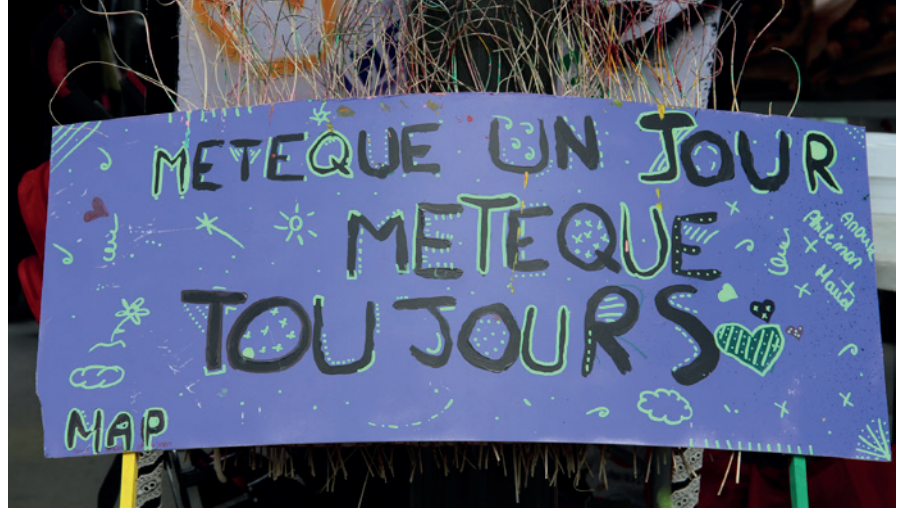 METEQUE UN JOUR
METEQUE
TOUJOURS
Philemon
MAP